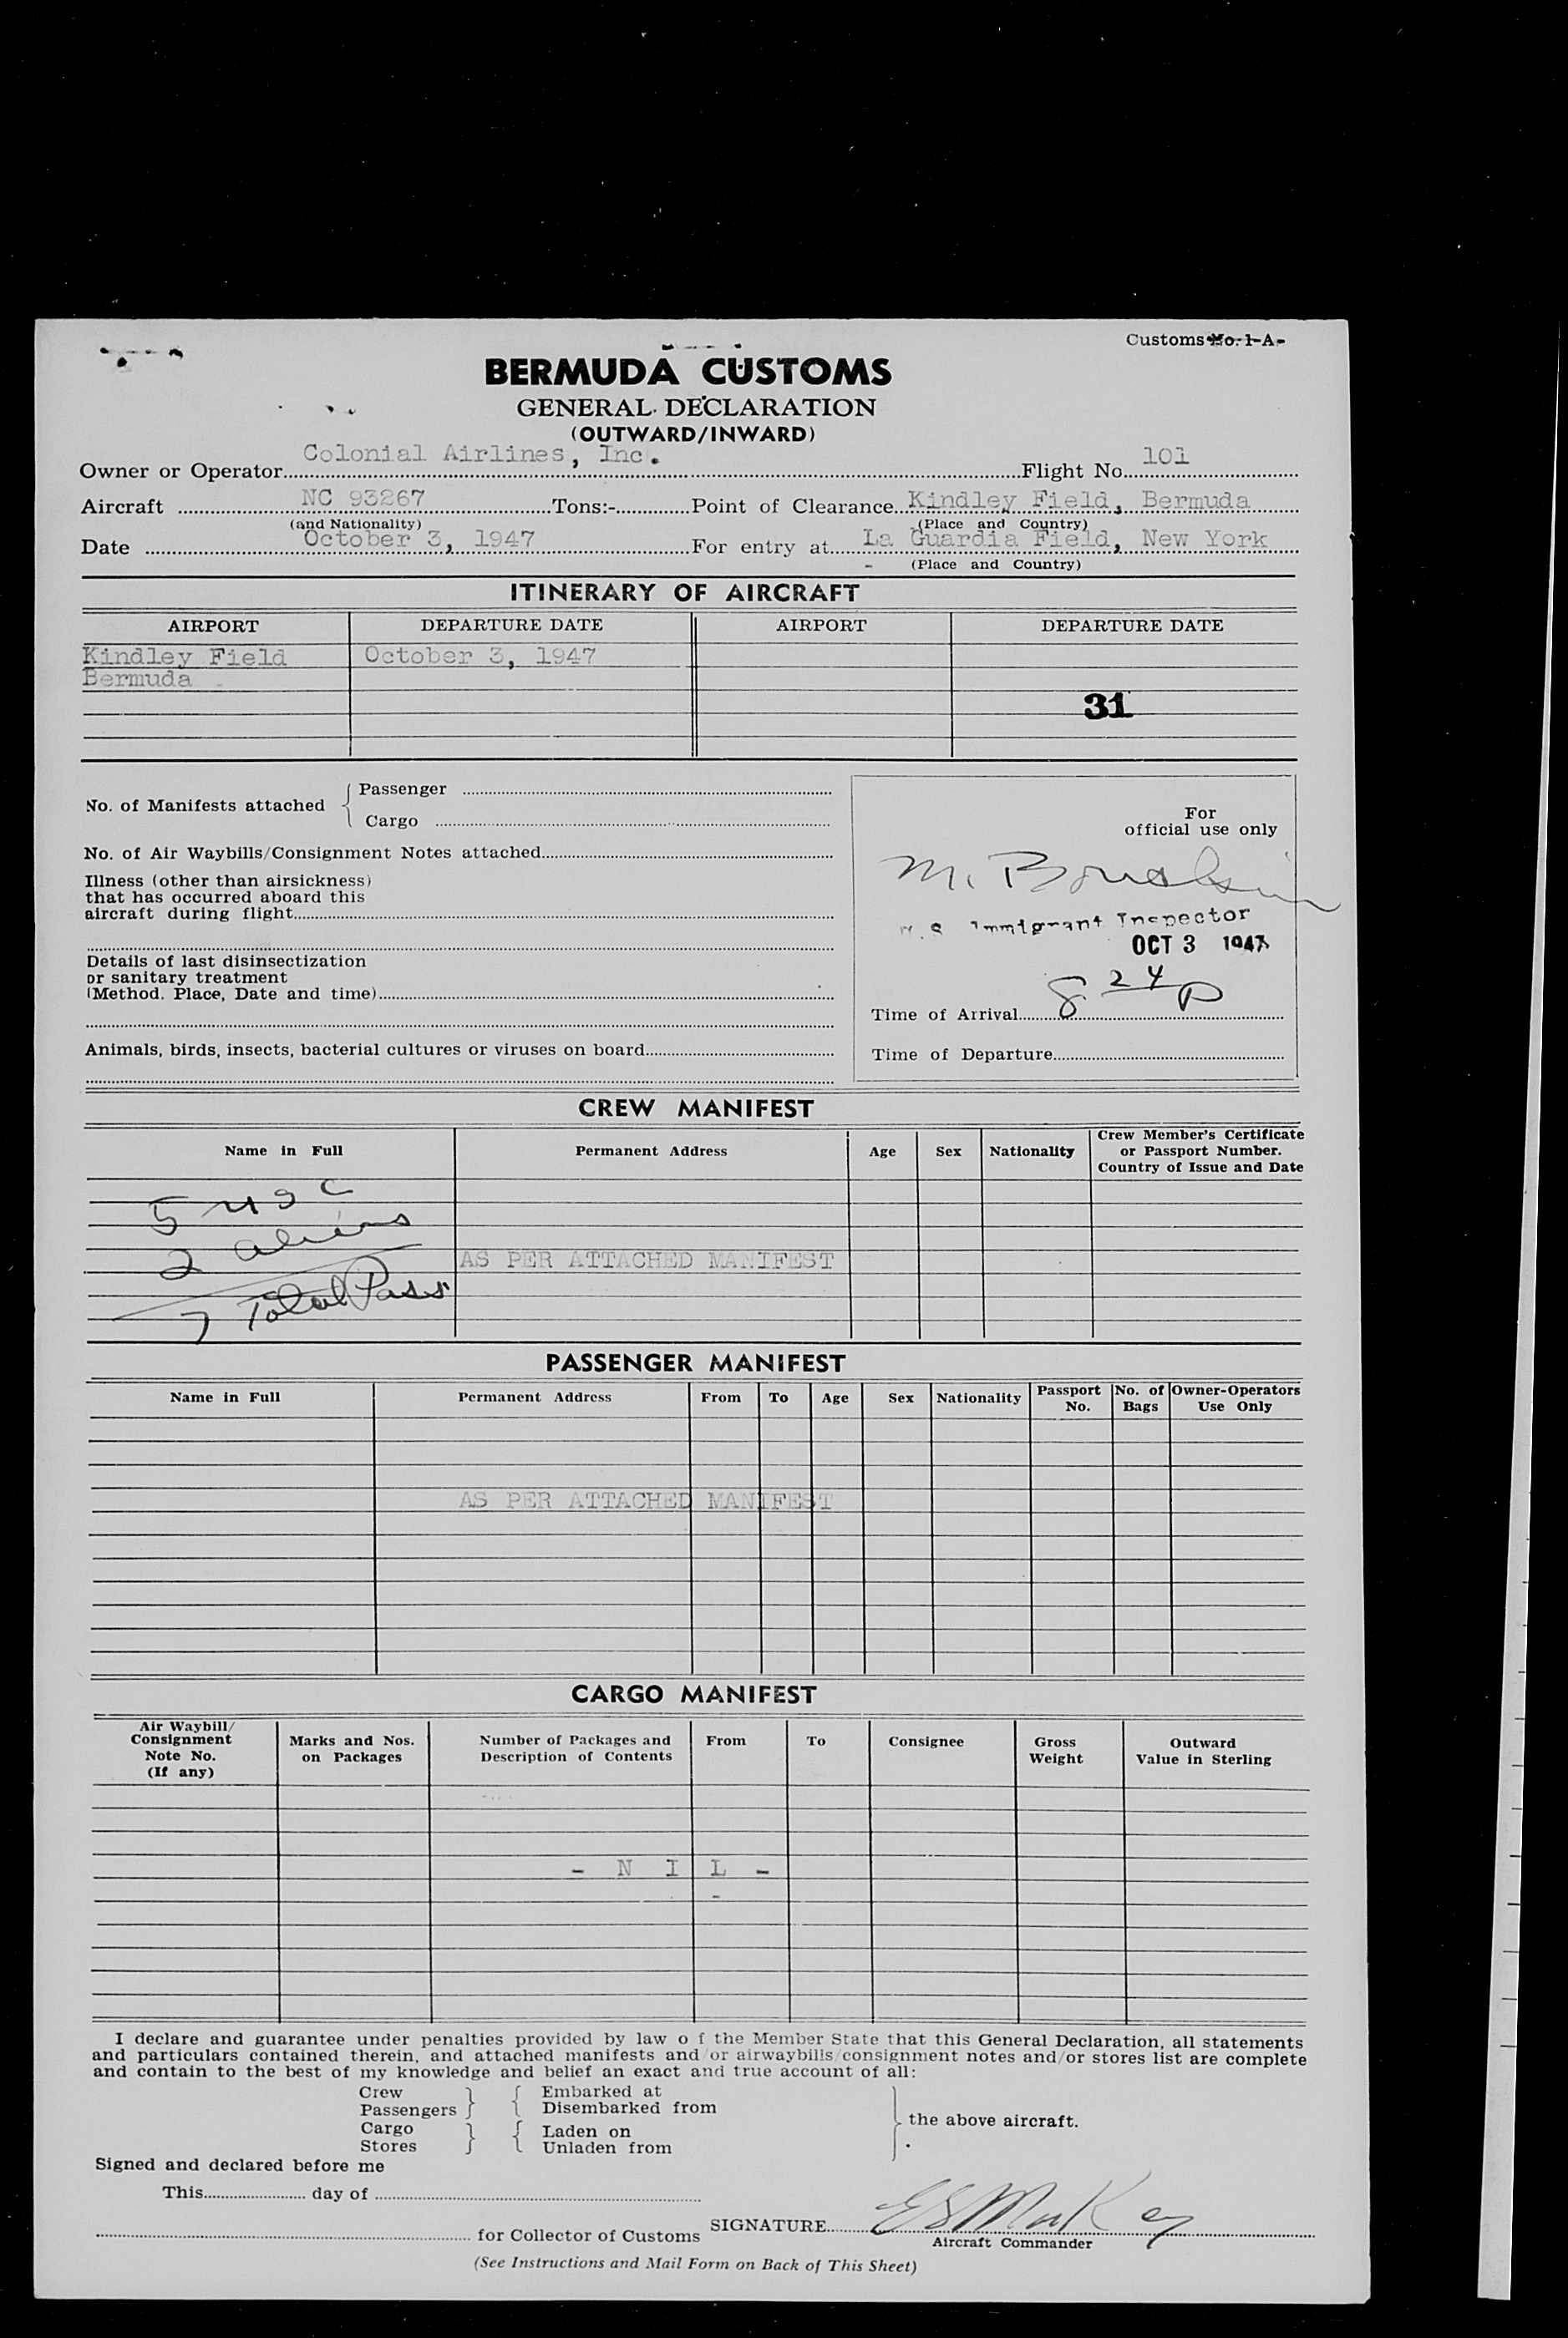 Customs No. 1-A-
BERMUDA CUSTOMS
GENERAL DECLARATION
(OUTWARD/INWARD)
Owner or Operator Colonial Airlines, Inc. Flight No. 101
Aircraft NC 93267 Tons:- Point of Clearance Kindley Field, Bermuda
(and Nationality) (Place and Country)
Date October 3, 1947 For entry at La Guardia Field, New York
(Place and Country)
ITINERARY OF AIRCRAFT
AIRPORT DEPARTURE DATE AIRPORT DEPARTURE DATE
Kindley Field October 3, 1947
Bermuda
31
No. of Manifests attached Passenger
Cargo
For
official use only
No. of Air Waybills/Consignment Notes attached
M.
Illness (other than airsickness)
that has occurred aboard this
aircraft during flight
U.S. Immigrant Inspector
OCT 3 1947
Details of last disinsectization
or sanitary treatment
(Method. Place, Date and time)
Time of Arrival 8 24 P
Animals, birds, insects, bacterial cultures or viruses on board
Time of Departure
CREW MANIFEST
Name in Full Permanent Address Age Sex Nationality Crew Member's Certificate
or Passport Number.
Country of Issue and Date
5 USC
2 aliens
AS PER ATTACHED MANIFEST
7 Total Pass
PASSENGER MANIFEST
Name in Full Permanent Address From To Age Sex Nationality Passport No. No. of Bags Owner-Operators Use Only
AS PER ATTACHED MANIFEST
CARGO MANIFEST
Air Waybill/ Consignment Note No. (If any) Marks and Nos. on Packages Number of Packages and Description of Contents From To Consignee Gross Weight Outward Value in Sterling
- N I L -
I declare and guarantee under penalties provided by law o f the Member State that this General Declaration, all statements
and particulars contained therein, and attached manifests and/or airwaybills/consignment notes and/or stores list are complete
and contain to the best of my knowledge and belief an exact and true account of all:
Crew Embarked at
Passengers Disembarked from
the above aircraft.
Cargo Laden on
Stores Unladen from
Signed and declared before me
This day of
for Collector of Customs SIGNATURE
Aircraft Commander
(See Instructions and Mail Form on Back of This Sheet)